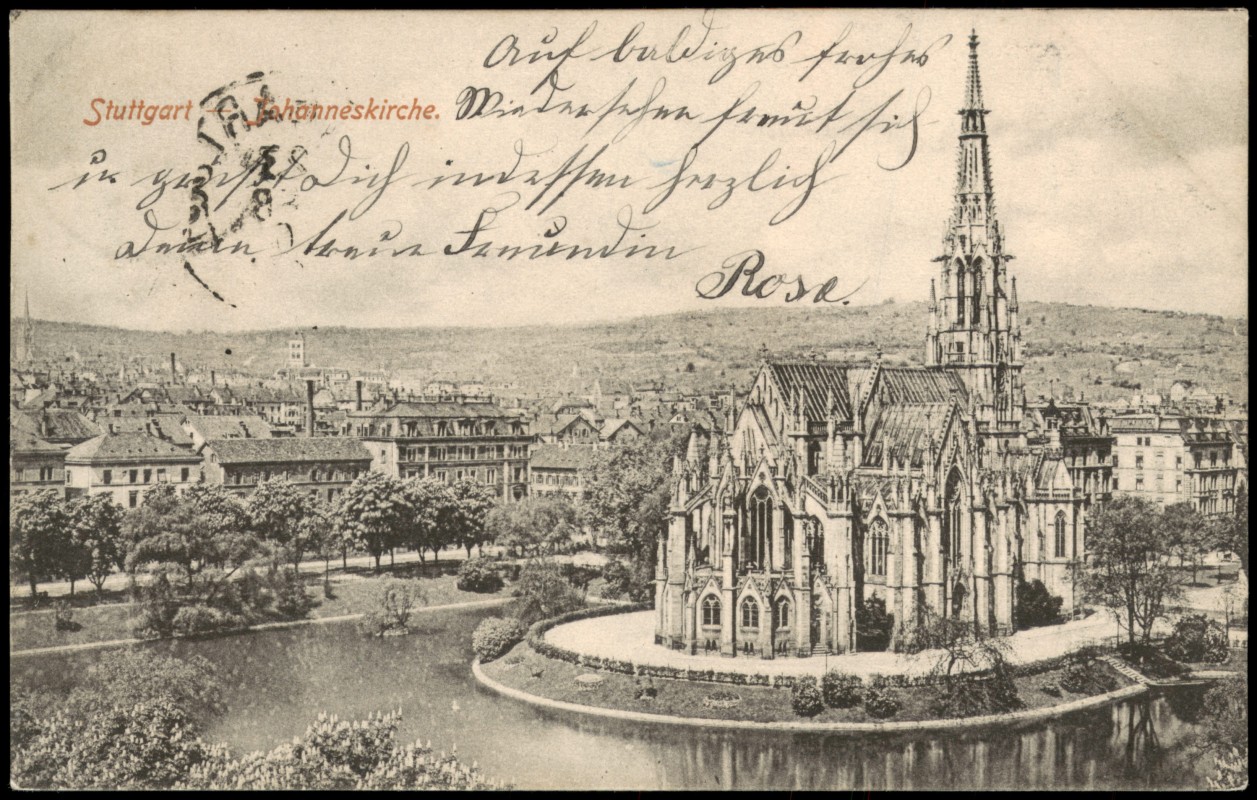 Auf baldiges frohes
Stuttgart – Johanneskirche.
Wiedersehen freut sich
u. grüsst Dich indessen herzlich
Deine treue Freundin
Rosa.